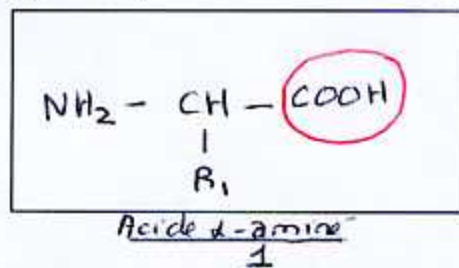 NH₂ - CH - COOH
|
R₁
Acide α-aminé
1